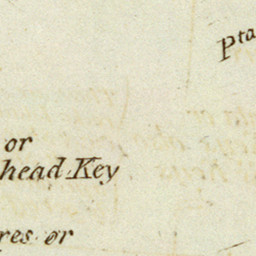 Pta
or
head Key
res or